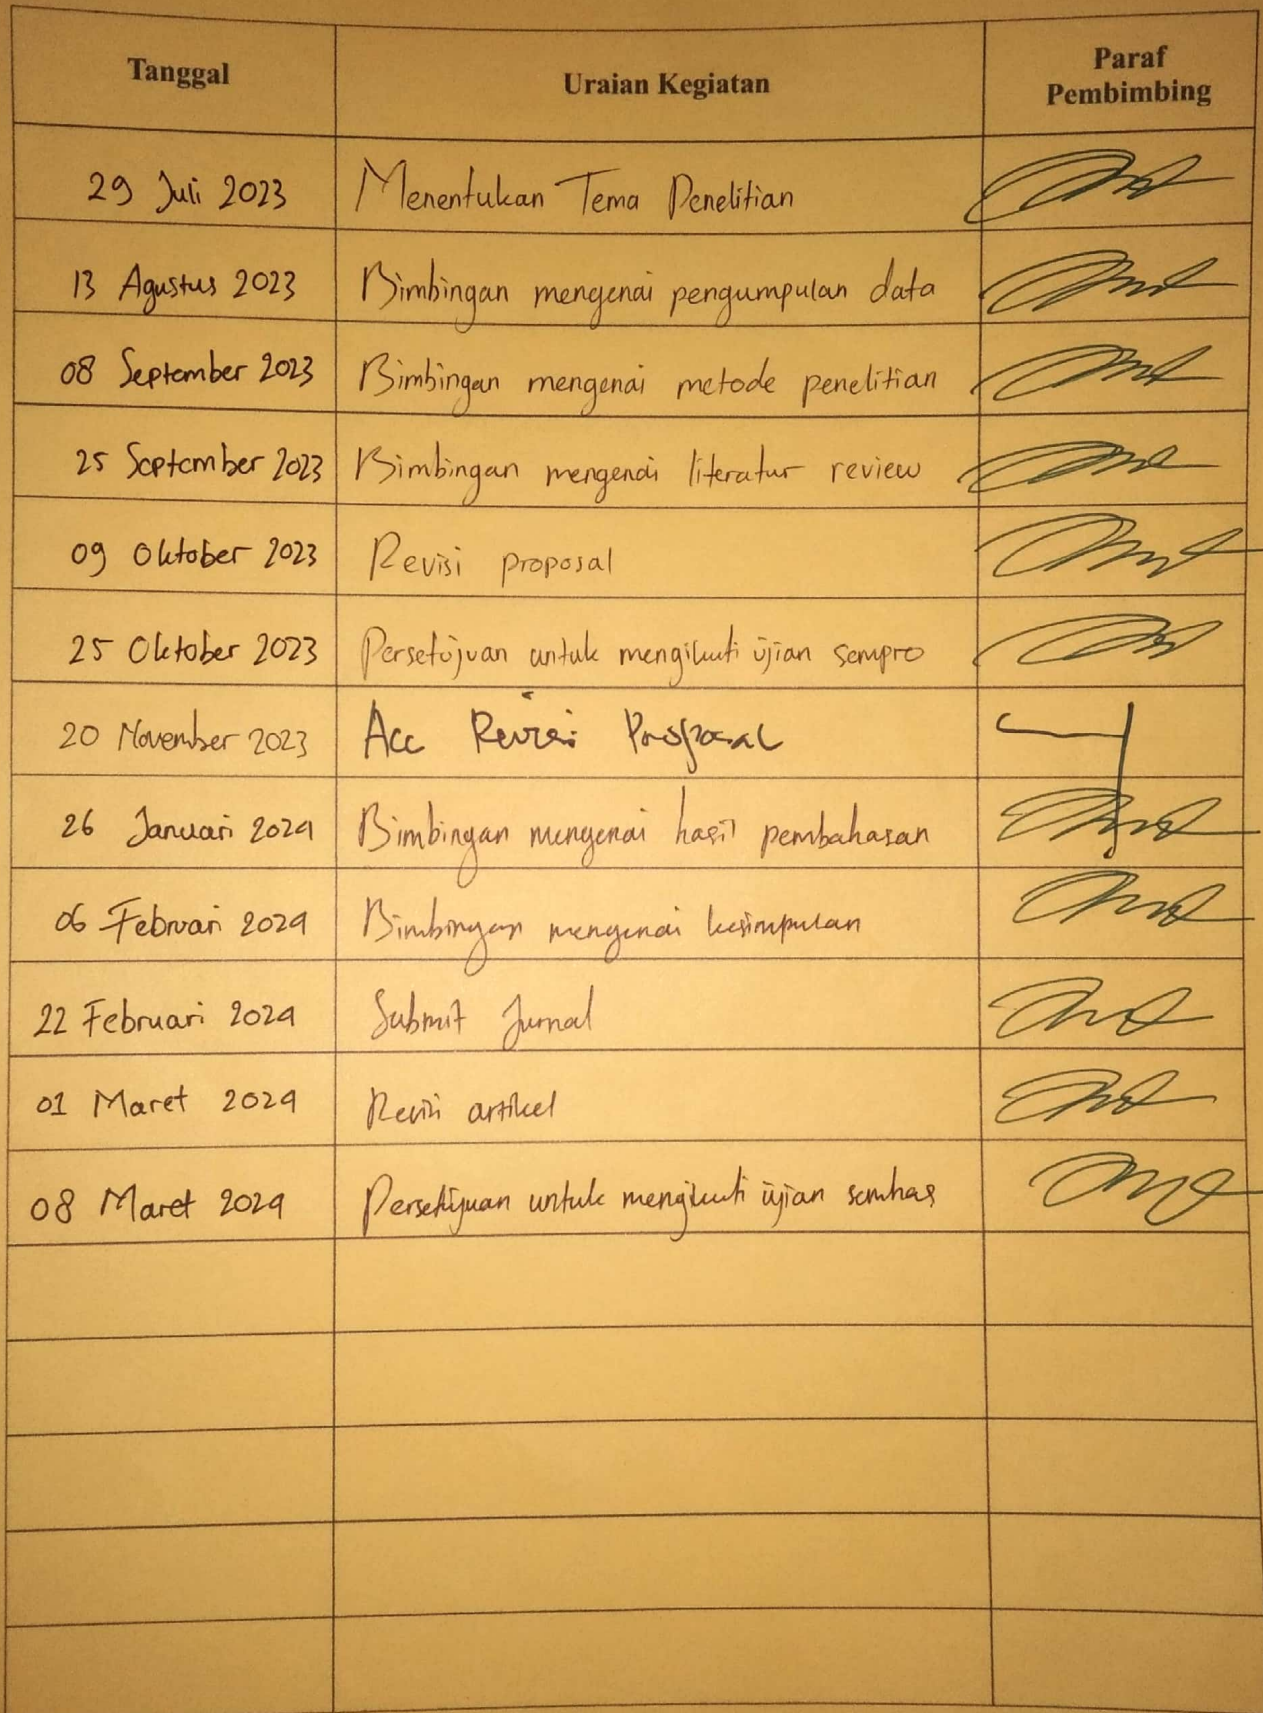 Tanggal Uraian Kegiatan Paraf Pembimbing
29 Juli 2023 Menentukan Tema Penelitian
13 Agustus 2023 Bimbingan mengenai pengumpulan data
08 September 2023 Bimbingan mengenai metode penelitian
25 September 2023 Bimbingan mengenai literatur review
09 Oktober 2023 Revisi proposal
25 Oktober 2023 Persetujuan untuk mengikuti ujian sempro
20 November 2023 Acc Revisi Proposal
26 Januari 2024 Bimbingan mengenai hasil pembahasan
06 Februari 2024 Bimbingan mengenai kesimpulan
22 Februari 2024 Submit Jurnal
01 Maret 2024 Revisi artikel
08 Maret 2024 Persetujuan untuk mengikuti ujian semhas